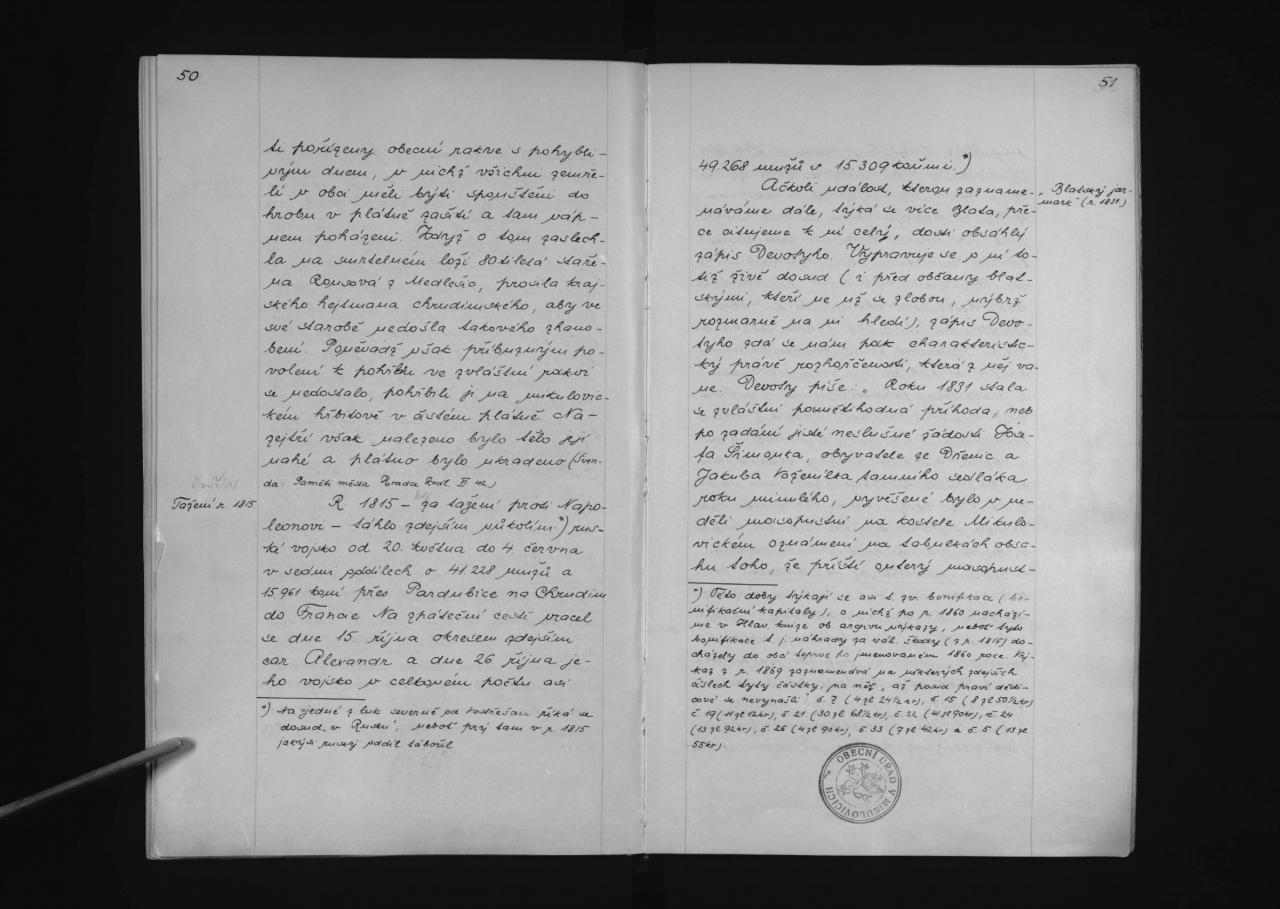 50
ti pořízeny obecní rakve s pohybli-
vým dnem, v nichž všichni zemře-
lí v obci měli býti spouštěni do
hrobu v plátně zašití a tam váp-
nem poházeni. Když o tom zaslech-
la na smrtelném loži 80tiletá staře-
na Rousová z Medlešic, prosila kraj-
ského hejtmana chrudimského, aby ve
své starobě nedošla takového zhano-
bení. Poněvadž však příbuzným po-
volení k pohřbu ve zvláštní rakvi
se nedostalo, pohřbili ji na mikulovic-
kém hřbitově v čistém plátně. Na-
zejtří však nalezeno bylo tělo její
nahé a plátno bylo ukradeno (Šven-
da: Paměti města Hradce Král. II 42)
Tažení r. 1815
R. 1815 – za tažení proti Napo-
leonovi – táhlo zdejším okolím *) rus-
ké vojsko od 20. května do 4. června
v sedmi oddílech o 41.228 mužů a
15.961 koni přes Pardubice na Chrudim
do Francie. Na zpáteční cestě vracel
se dne 15. října okresem zdejším
car Alexandr a dne 26. října je-
ho vojsko v celkovém počtu asi
*) Na jedné z luk severně od Kostěšan říká se
dosud „v Rusku", neboť prý tam v r. 1815
jakýsi ruský oddíl tábořil
51
49.268 mužů s 15.309 koňmi. *)
„Blatský jar-
mark" (r. 1831)
Ačkoli událost, kterou zazname-
náváme dále, týká se více Blata, pře-
ce citujeme k ní celý, dosti obsáhlý
zápis Devotyho. Vypravuje se o ní to-
tiž živě dosud (i před občany blat-
skými, kteří ne už se zlobou, nýbrž
rozmarně na ni hledí), zápis Devo-
tyho zdá se nám pak charakteristic-
ký právě rozhořčeností, která z něj va-
ne. Devoty píše: „Roku 1831 stala
se zvláštní posměchhodná příhoda, neb
po zadání jisté neslušné žádosti Jose-
fa Šimonka, obyvatele ze Dřenic a
Jakuba Voženílka tamního sedláka
roku minulého, vyvěšené bylo v ne-
děli masopustní na kostele Mikulo-
vickém oznámení na tabulkách obsa-
hu toho, že příští outerý masopust-
*) Této doby týkají se asi t. zv. bonifikace (bo-
nifikační kapitály), o nichž po r. 1860 nachází-
me v Hlav. knize ob. archivu výkazy, neboť tyto
bonifikace t. j. náhrady za vál. škody (z r. 1815) do-
cházely do obcí teprve ho jmenovaném 1860 roce. Vý-
kaz z r. 1869 zaznamenává na některých zdejších
číslech tyto částky, na něž „až posud praví dědi-
cové se nevynašli": č. 7 (4 zl 24½ kr), č. 15 (8 zl 50½ kr)
č. 19 (11 zl 12 kr), č. 21 (30 zl 68½ kr), č. 22 (41 zl 90 kr), č. 24
(13 zl 92 kr), č. 26 (4 zl 90 kr), č. 33 (7 zl 42 kr) a č. 5 (13 zl
55 kr).
OBECNÍ ÚŘAD V MIKULOVICÍCH